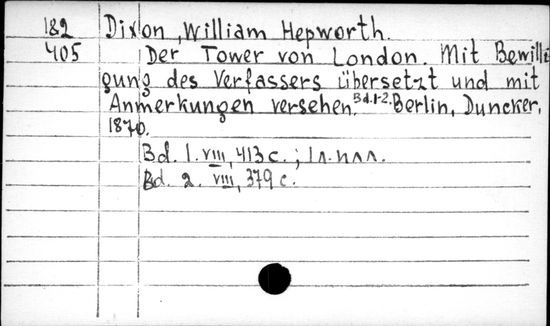 182 Dixon, William Hepworth.
405 Der Tower von London. Mit Bewilli-
gung des Verfassers übersetzt und mit
Anmerkungen versehen. Bd.1-2. Berlin, Duncker,
1870.
Bd. 1. VIII, 413 c.; 1 л. илл.
Bd. 2. VIII, 379 c.